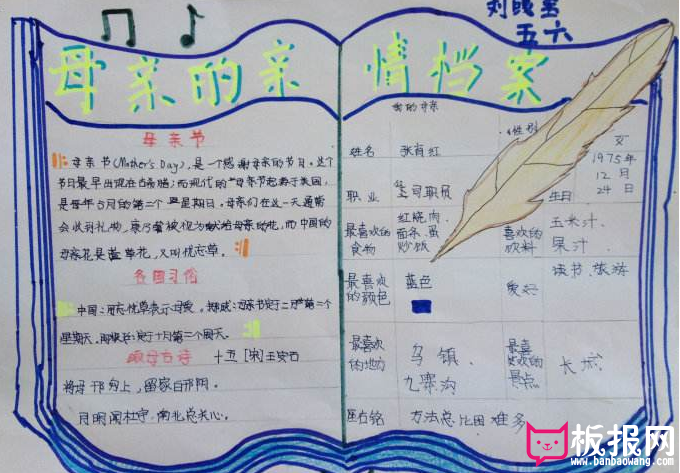 五六
母亲的亲情档案
母亲节
母亲节(Mother's Day),是一个感谢母亲的节日。这个
节日最早出现在古希腊;而现代的母亲节起源于美国,
是每年5月的第二个星期日。母亲们在这一天通常
会收到礼物,康乃馨被视为献给母亲的花,而中国的
母亲花是萱草花,又叫忘忧草。
各国习俗
中国:用忘忧草表示母爱。挪威:母亲节定于二月第二个
星期天。阿根廷:定于十月第二个周天。
颂母古诗 十五 [宋]王安石
将母邗沟上,留家白邗阴。
月明闻杜宇,南北总关心。
我的母亲
姓名 张肖红 性别 女
职业 公司职员 生日 1975年
12月
24日
最喜欢的食物 红烧肉、
面条、蛋
炒饭
喜欢的饮料 玉米汁、
果汁
最喜欢的颜色 蓝色
爱好 读书、旅游
最喜欢的地方 乌镇、
九寨沟
最喜欢的景点 长城
座右铭 方法总比困难多
板报网
www.banbaowang.com